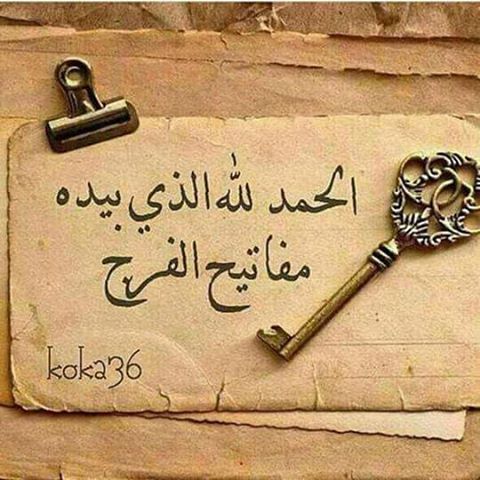 الحمد لله الذي بيده
مفاتيح الفرج
koka36